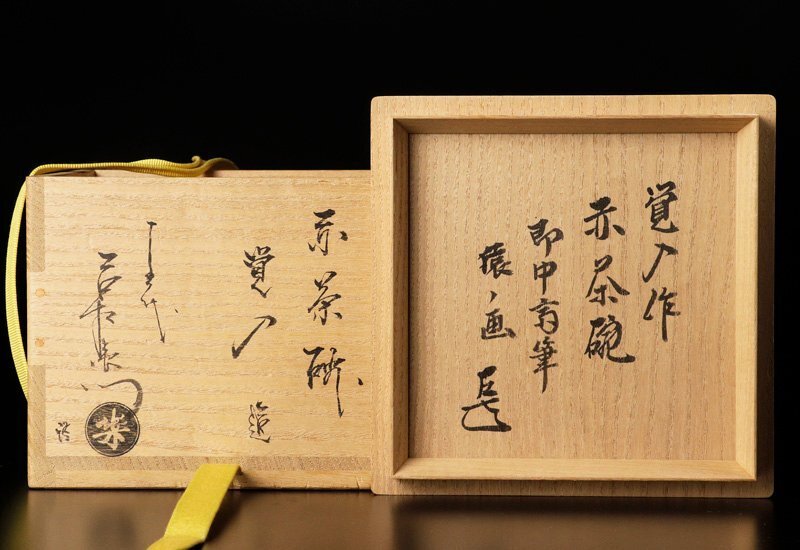 覚入作
赤茶碗
即中斎筆
猿ノ画
赤茶碗
覚入 造
十五代
吉左衛門